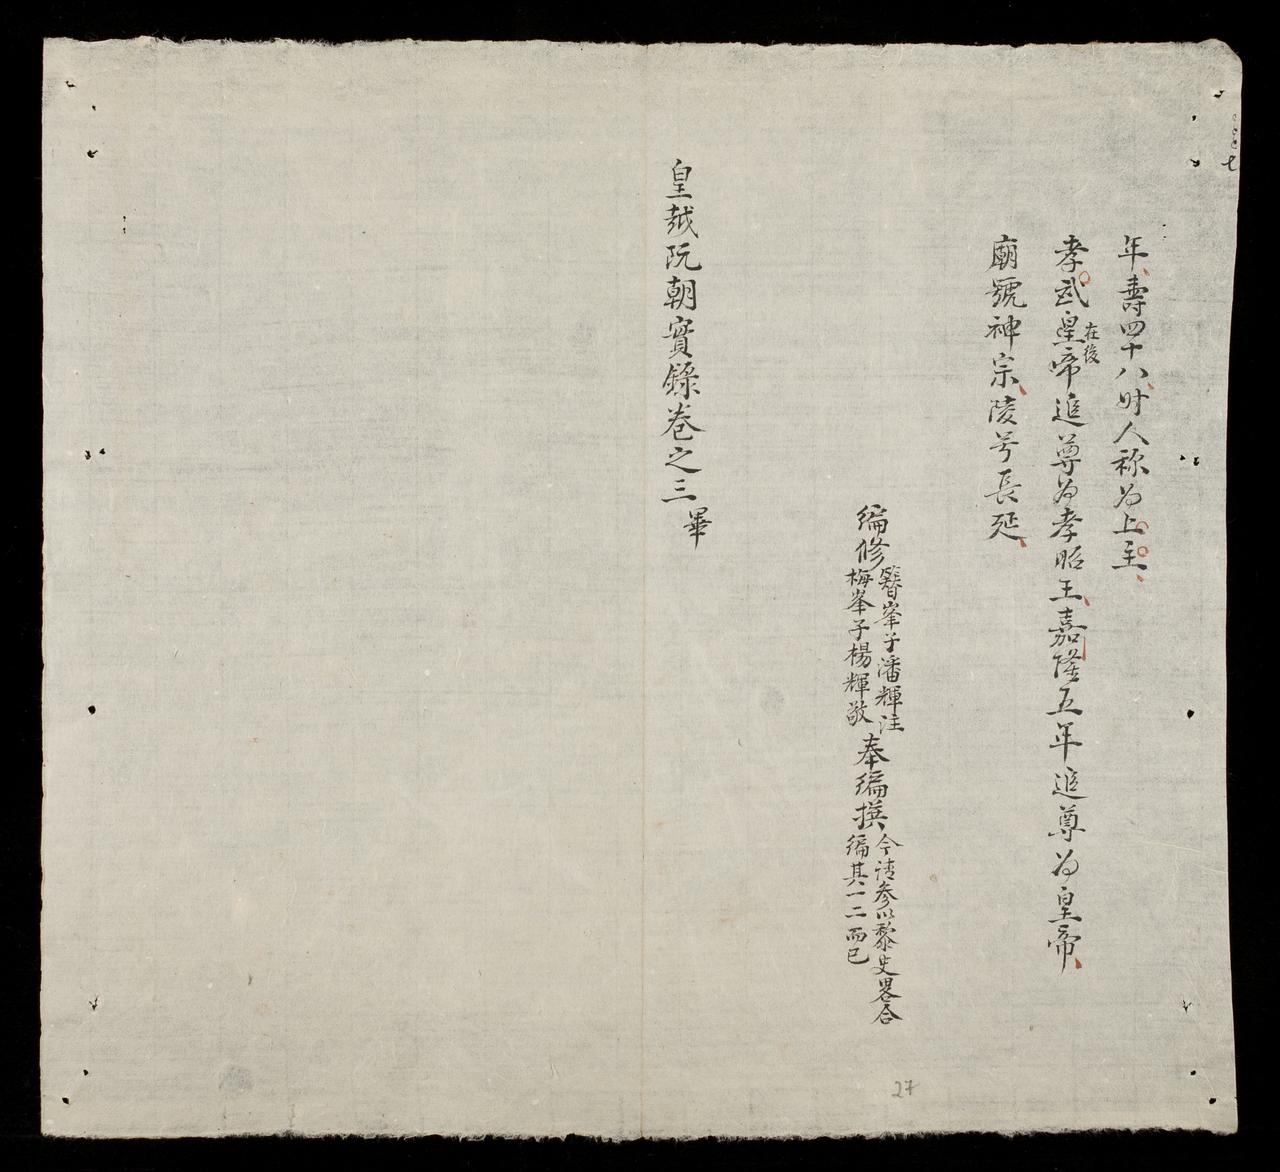 年壽四十八时人称为上主
孝武皇帝在後追尊为孝昭王嘉隆五年追尊为皇帝
廟號神宗陵号長延
編修
簪峯子潘輝注
梅峯子楊輝敬
奉編撰
今請参以黎史畧合
編其一二而已
皇越阮朝實錄卷之三畢
27